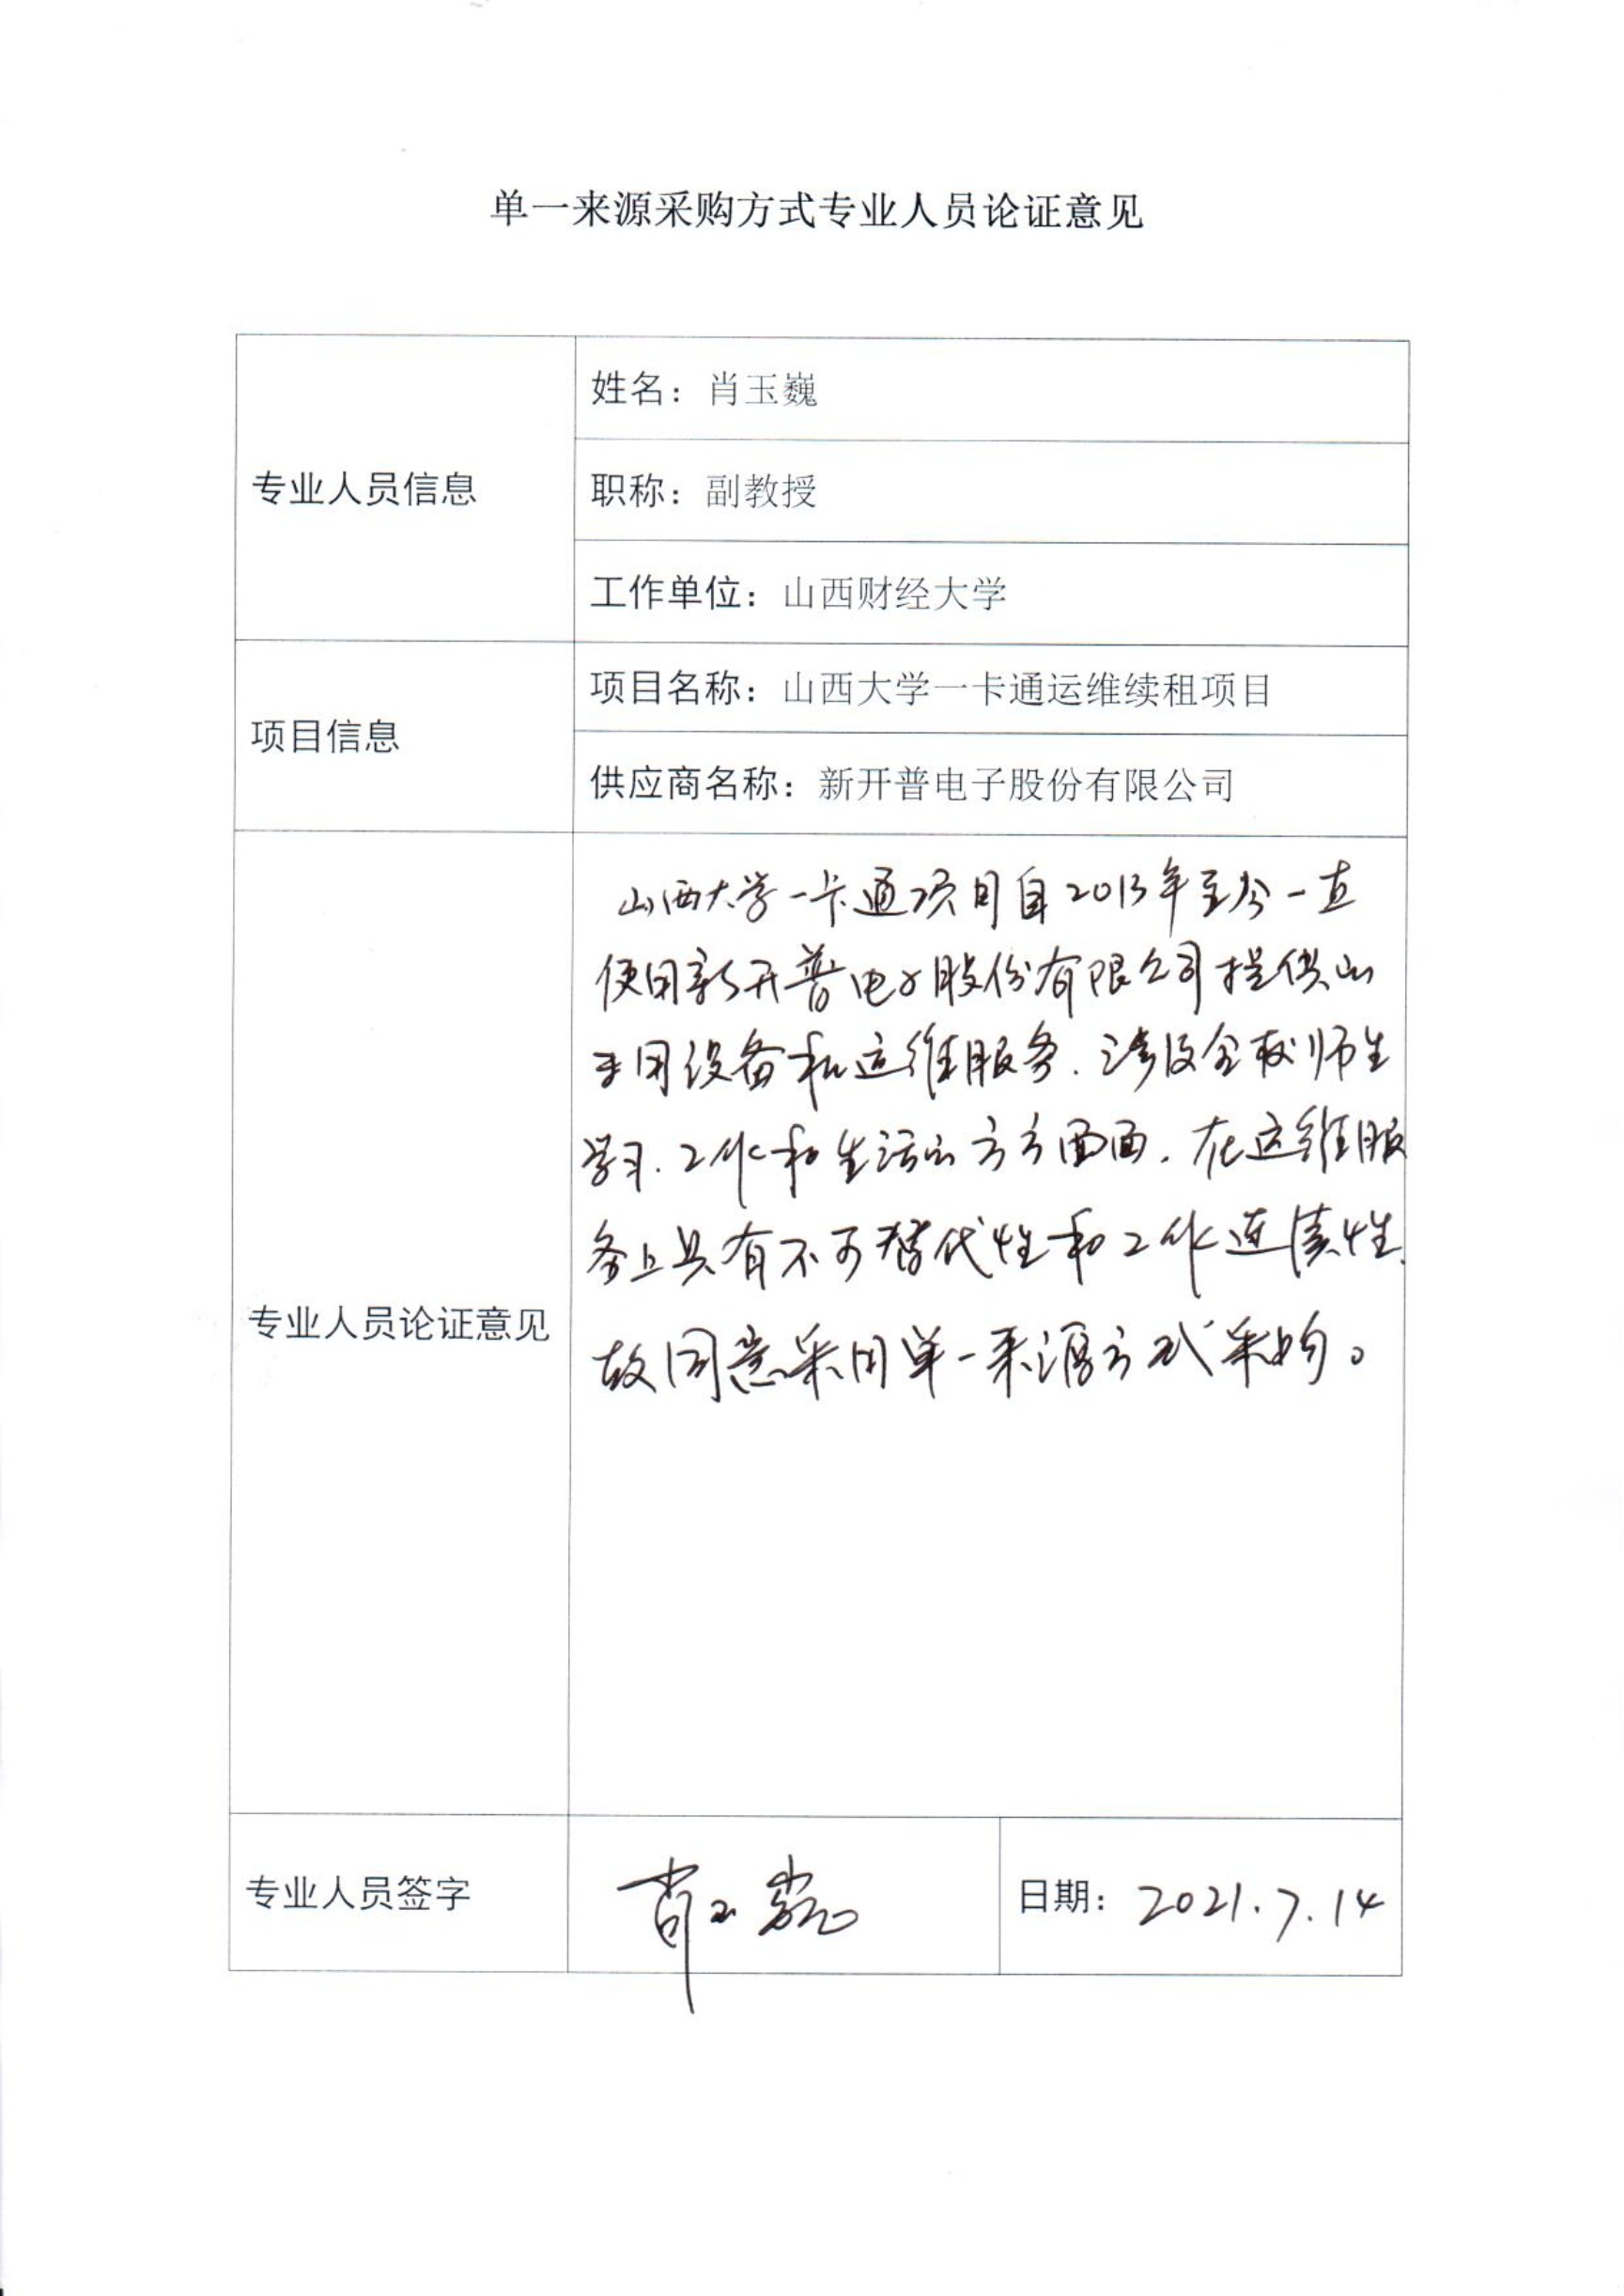 单一来源采购方式专业人员论证意见
专业人员信息
姓名：肖玉巍
职称：副教授
工作单位：山西财经大学
项目信息
项目名称：山西大学一卡通运维续租项目
供应商名称：新开普电子股份有限公司
专业人员论证意见
山西大学一卡通项目自2013年至今一直
使用新开普电子股份有限公司提供的
专用设备和运维服务.涉及全校师生
学习.工作和生活的方方面面.在运维服
务上具有不可替代性和工作连续性.
故同意采用单一来源方式采购。
专业人员签字
肖玉巍
日期：2021.7.14